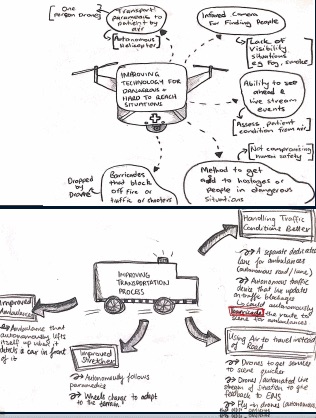 One
person Drone
Transport
paramedic to
patient by
air
Autonomous
Helicopter
Infrared Camera
for Finding People
Lack of
Visibility
situations
e.g Fog, smoke
IMPROVING
TECHNOLOGY FOR
DANGEROUS +
HARD TO REACH
SITUATIONS
Ability to see
ahead &
live stream
events
Assess patient
condition from air
Not compromising
human safety
Dropped
by
Drone
Barricades
that block
off fire or
traffic or shooters
Method to get
aid to hostages or
people in dangerous
situations
Handling Traffic
Conditions Better
A separate dedicated
lane for ambulances
(autonomous road/lane)
Autonomous traffic
device that
on traffic blockages
Could autonomously
barricade the route to
scene for ambulances
IMPROVING
TRANSPORTATION
PROCESS
Improved
Ambulance
Ambulance that
autonomously lifts
itself up when it
detects a car in front
of it
Improved
Stretcher
Autonomously follows
paramedic
Wheels change to adapt
to the terrain
Using Air to travel instead
of Road
Drones to get
to scene quicker
Drones/automated live
stream of situation to get
feedback to EMS
Fly-in drones